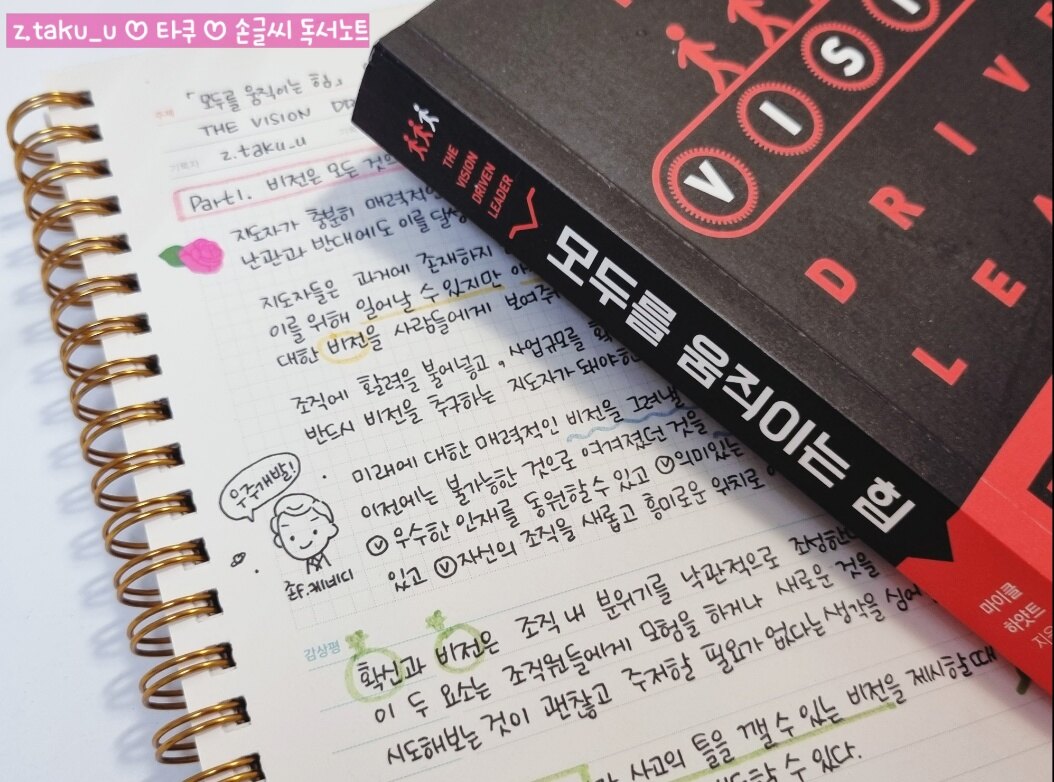 z.taku_u ♡ 타쿠 ♡ 손글씨 독서노트
주제 「모두를 움직이는 힘」
THE VISION DR
기록자 z.taku_u
Part1. 비전은 모든 것의
지도자가 충분히 매력적인
난관과 반대에도 이를 달성
지도자들은 과거에 존재하지
이를 위해 일어날 수 있지만
대한 비전을 사람들에게 보여주
조직에 활력을 불어넣고, 사업규모를
반드시 비전을 추구하는 지도자가 돼야한
· 미래에 대한 매력적인 비전을 그려낼
이전에는 불가능한 것으로 여겨졌던 것을
ⓥ우수한 인재를 동원할 수 있고 ⓥ의미있는
있고 ⓥ자신의 조직을 새롭고 흥미로운 위치로
우주개발!
존F.케네디
감상평
확신과 비전은 조직 내 분위기를 낙관적으로 조성한
이 두 요소는 조직원들에게 모험을 하거나 새로운 것을
시도해보는 것이 괜찮고 주저할 필요가 없다는 생각을 심어
사고의 틀을 깰 수 있는 비전을 제시할 때
할 수 있다.
THE
VISION
DRIVEN
LEADER
모두를 움직이는 힘
마이클
하얏트
지음
VISI
DRIV
LEA